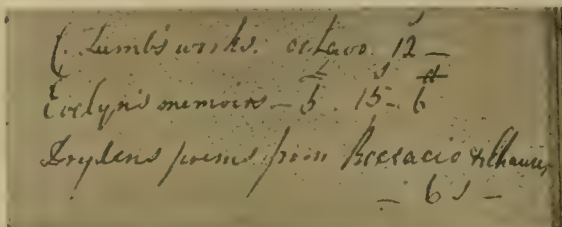 C. Lamb's works. octavo. 12 —
Evelyn's memoirs — 5 . 15 - 6
Drydens poems from Boccacio & Chaucer
— 6 s —